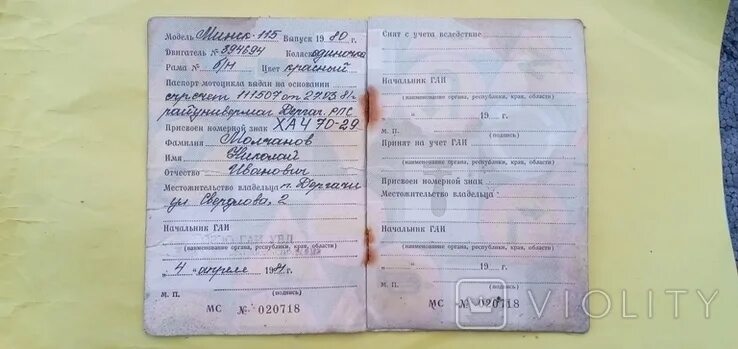 Модель Минск-115 Выпуск 1980 г.
Двигатель № 394694 Коляс одиночка
Рама № б/н Цвет красный
Паспорт мотоцикла выдан на основании
сч. расчет 111507 от 27.03.81г
райунивермаг Дергач. РПС
Присвоен номерной знак ХАЧ 70-29
Фамилия Молчанов
Имя Николай
Отчество Иванович
Местожительство владельца п. Дергачи
ул Свердлова, 2
Начальник ГАИ
(наименование органа, республики, края, области)
"4" апреля 1981г.
М. П. (подпись)
МС № 020718
Снят с учета вследствие
Начальник ГАИ
(наименование органа, республики, края, области)
" " 19 г.
М. П. (подпись)
Принят на учет ГАИ
(наименование органа, республики, края, области)
Присвоен номерной знак
Местожительство владельца
Начальник ГАИ
(наименование органа, республики, края, области)
" " 19 г.
М. П. (подпись)
МС № 020718
VIOLITY